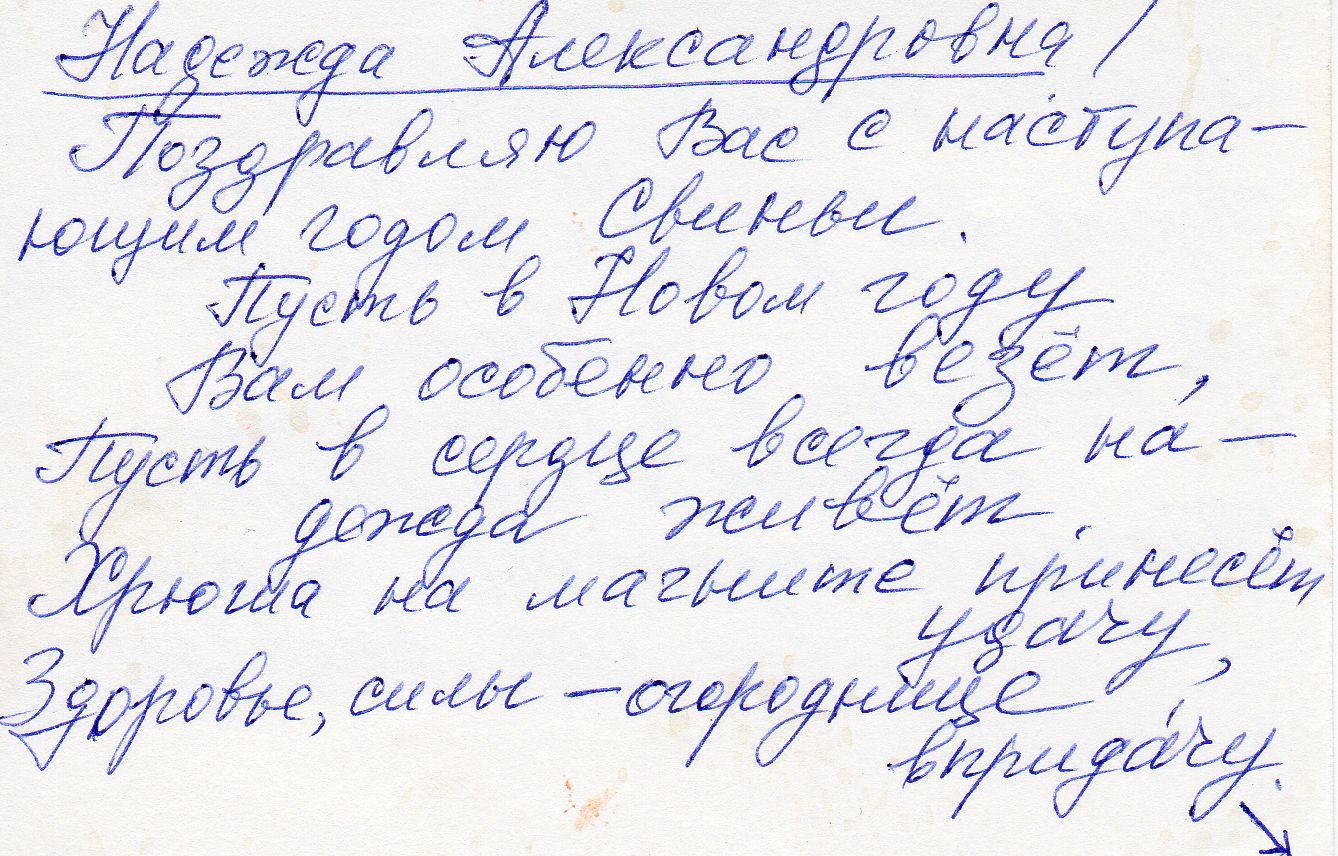 Надежда Александровна!
Поздравляю Вас с наступа-
ющим годом Свиньи.
Пусть в Новом году
Вам особенно везёт,
Пусть в сердце всегда на-
дежда живёт.
Хрюша на магните принесёт
удачу,
Здоровье, силы – огороднице
впридачу.